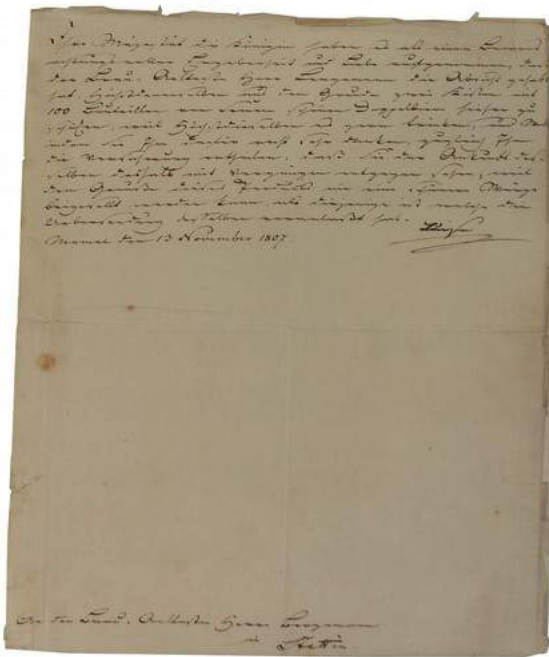 Ihro Majestät die Königin haben es als einen Beweis
achtungsvoller Ergebenheit und Liebe aufgenommen, daß
der Brau-Aelteste Herr Bergemann die Absicht gehabt
hat, Höchstdenenselben aus dem Grunde zwei Kisten mit
100 Bouteillen von seinem schönen Doppelbier hieher zu
schicken, weil Höchstdieselben es gern trinken, und
Ihm recht sehr danken, zugleich Ihm
die Versicherung ertheilen, daß Sie der Ankunft des-
selben deshalb mit Vergnügen entgegen sehen, weil
dem Genuße dieses Products nie eine schönere Würze
beigesellt werden kann, als diejenige ist welche die
Uebersendung desselben veranlaßt hat.
Memel den 13 November 1807
Luise
An den Brau-Aeltesten Herrn Bergemann
in Stettin